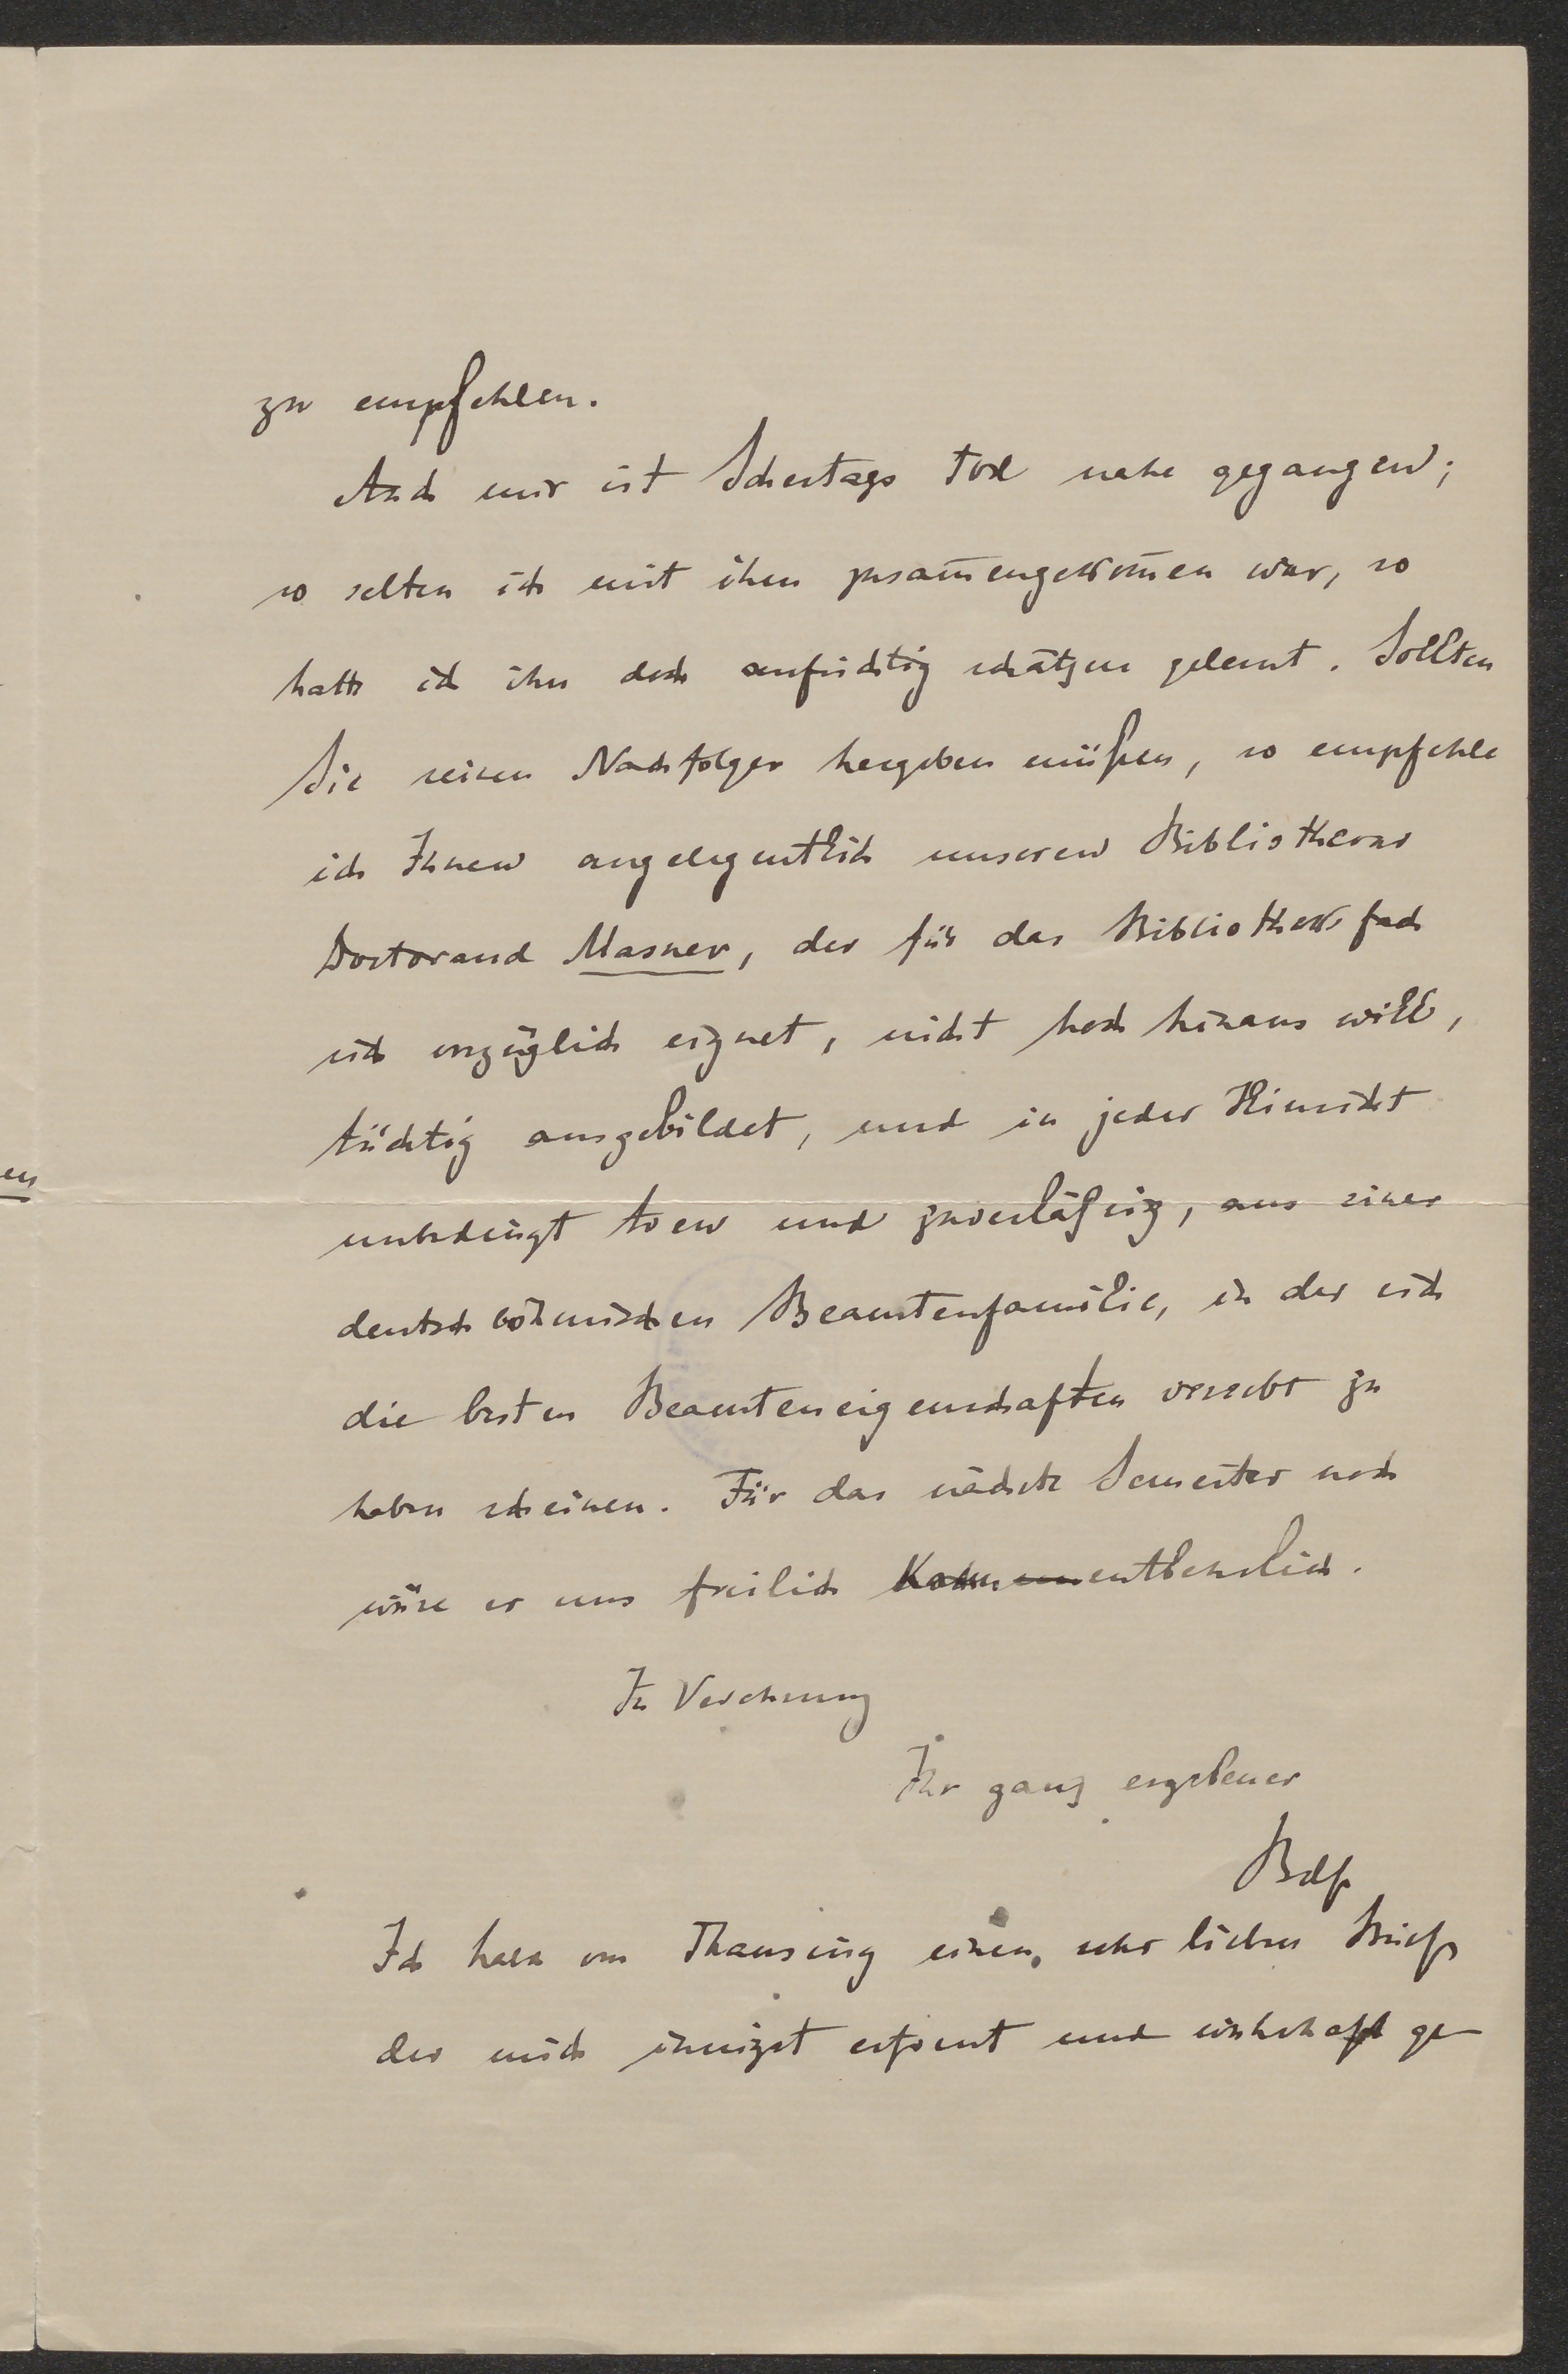 zu empfehlen.
Auch mir ist Schestags Tod nahe gegangen;
so selten ich mit ihm zusam̄engekom̄en war, so
hatte ich ihn doch aufrichtig schätzen gelernt. Sollten
Sie seinen Nachfolger hergeben müßen, so empfehle
ich Ihnen angelegentlich unseren Bibliothekar
Doctorand Masner, der für das Bibliotheksfach
sich vorzüglich eignet, nicht hoch hinaus will,
tüchtig ausgebildet, und in jeder Hinsicht
unbedingt treu und zuverläßig, aus einer
deutschböhmischen Beamtenfamilie, in der sich
die besten Beamteneigenschaften vererbt zu
haben scheinen. Für das nächste Semester noch
wäre er uns freilich kaum entbehrlich.
In Verehrung
Ihr ganz ergebener
Bdf
Ich habe von Thausing einen sehr lieben Brief
der mich innigst erfreut und wahrhaft ge-
en